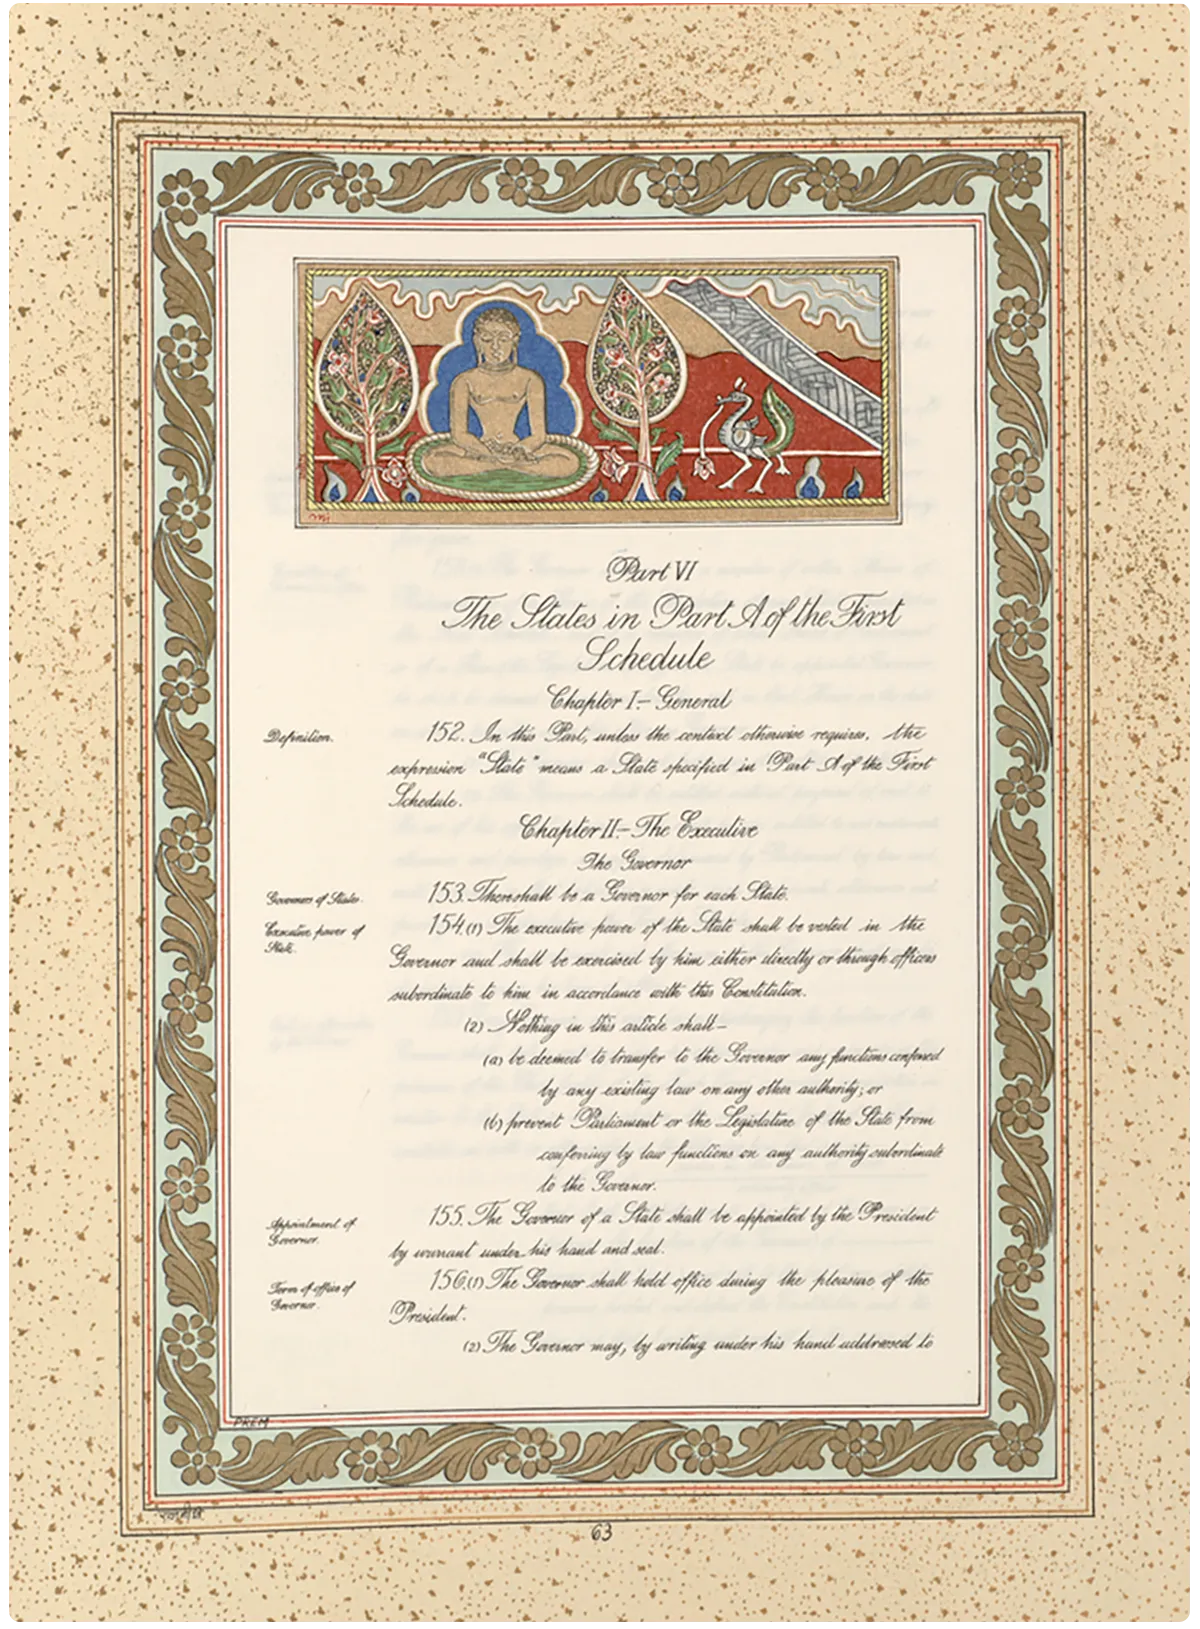 Part VI
The States in Part A of the First
Schedule
Chapter I.— General
Definition.
152. In this Part, unless the context otherwise requires, the
expression "State" means a State specified in Part A of the First
Schedule.
Chapter II.— The Executive
The Governor
Governors of States.
153. There shall be a Governor for each State.
Executive power of
State.
154. (1) The executive power of the State shall be vested in the
Governor and shall be exercised by him either directly or through officers
subordinate to him in accordance with this Constitution.
(2) Nothing in this article shall—
(a) be deemed to transfer to the Governor any functions conferred
by any existing law on any other authority; or
(b) prevent Parliament or the Legislature of the State from
conferring by law functions on any authority subordinate
to the Governor.
Appointment of
Governor.
155. The Governor of a State shall be appointed by the President
by warrant under his hand and seal.
Term of office of
Governor.
156. (1) The Governor shall hold office during the pleasure of the
President.
(2) The Governor may, by writing under his hand addressed to
PREM
63